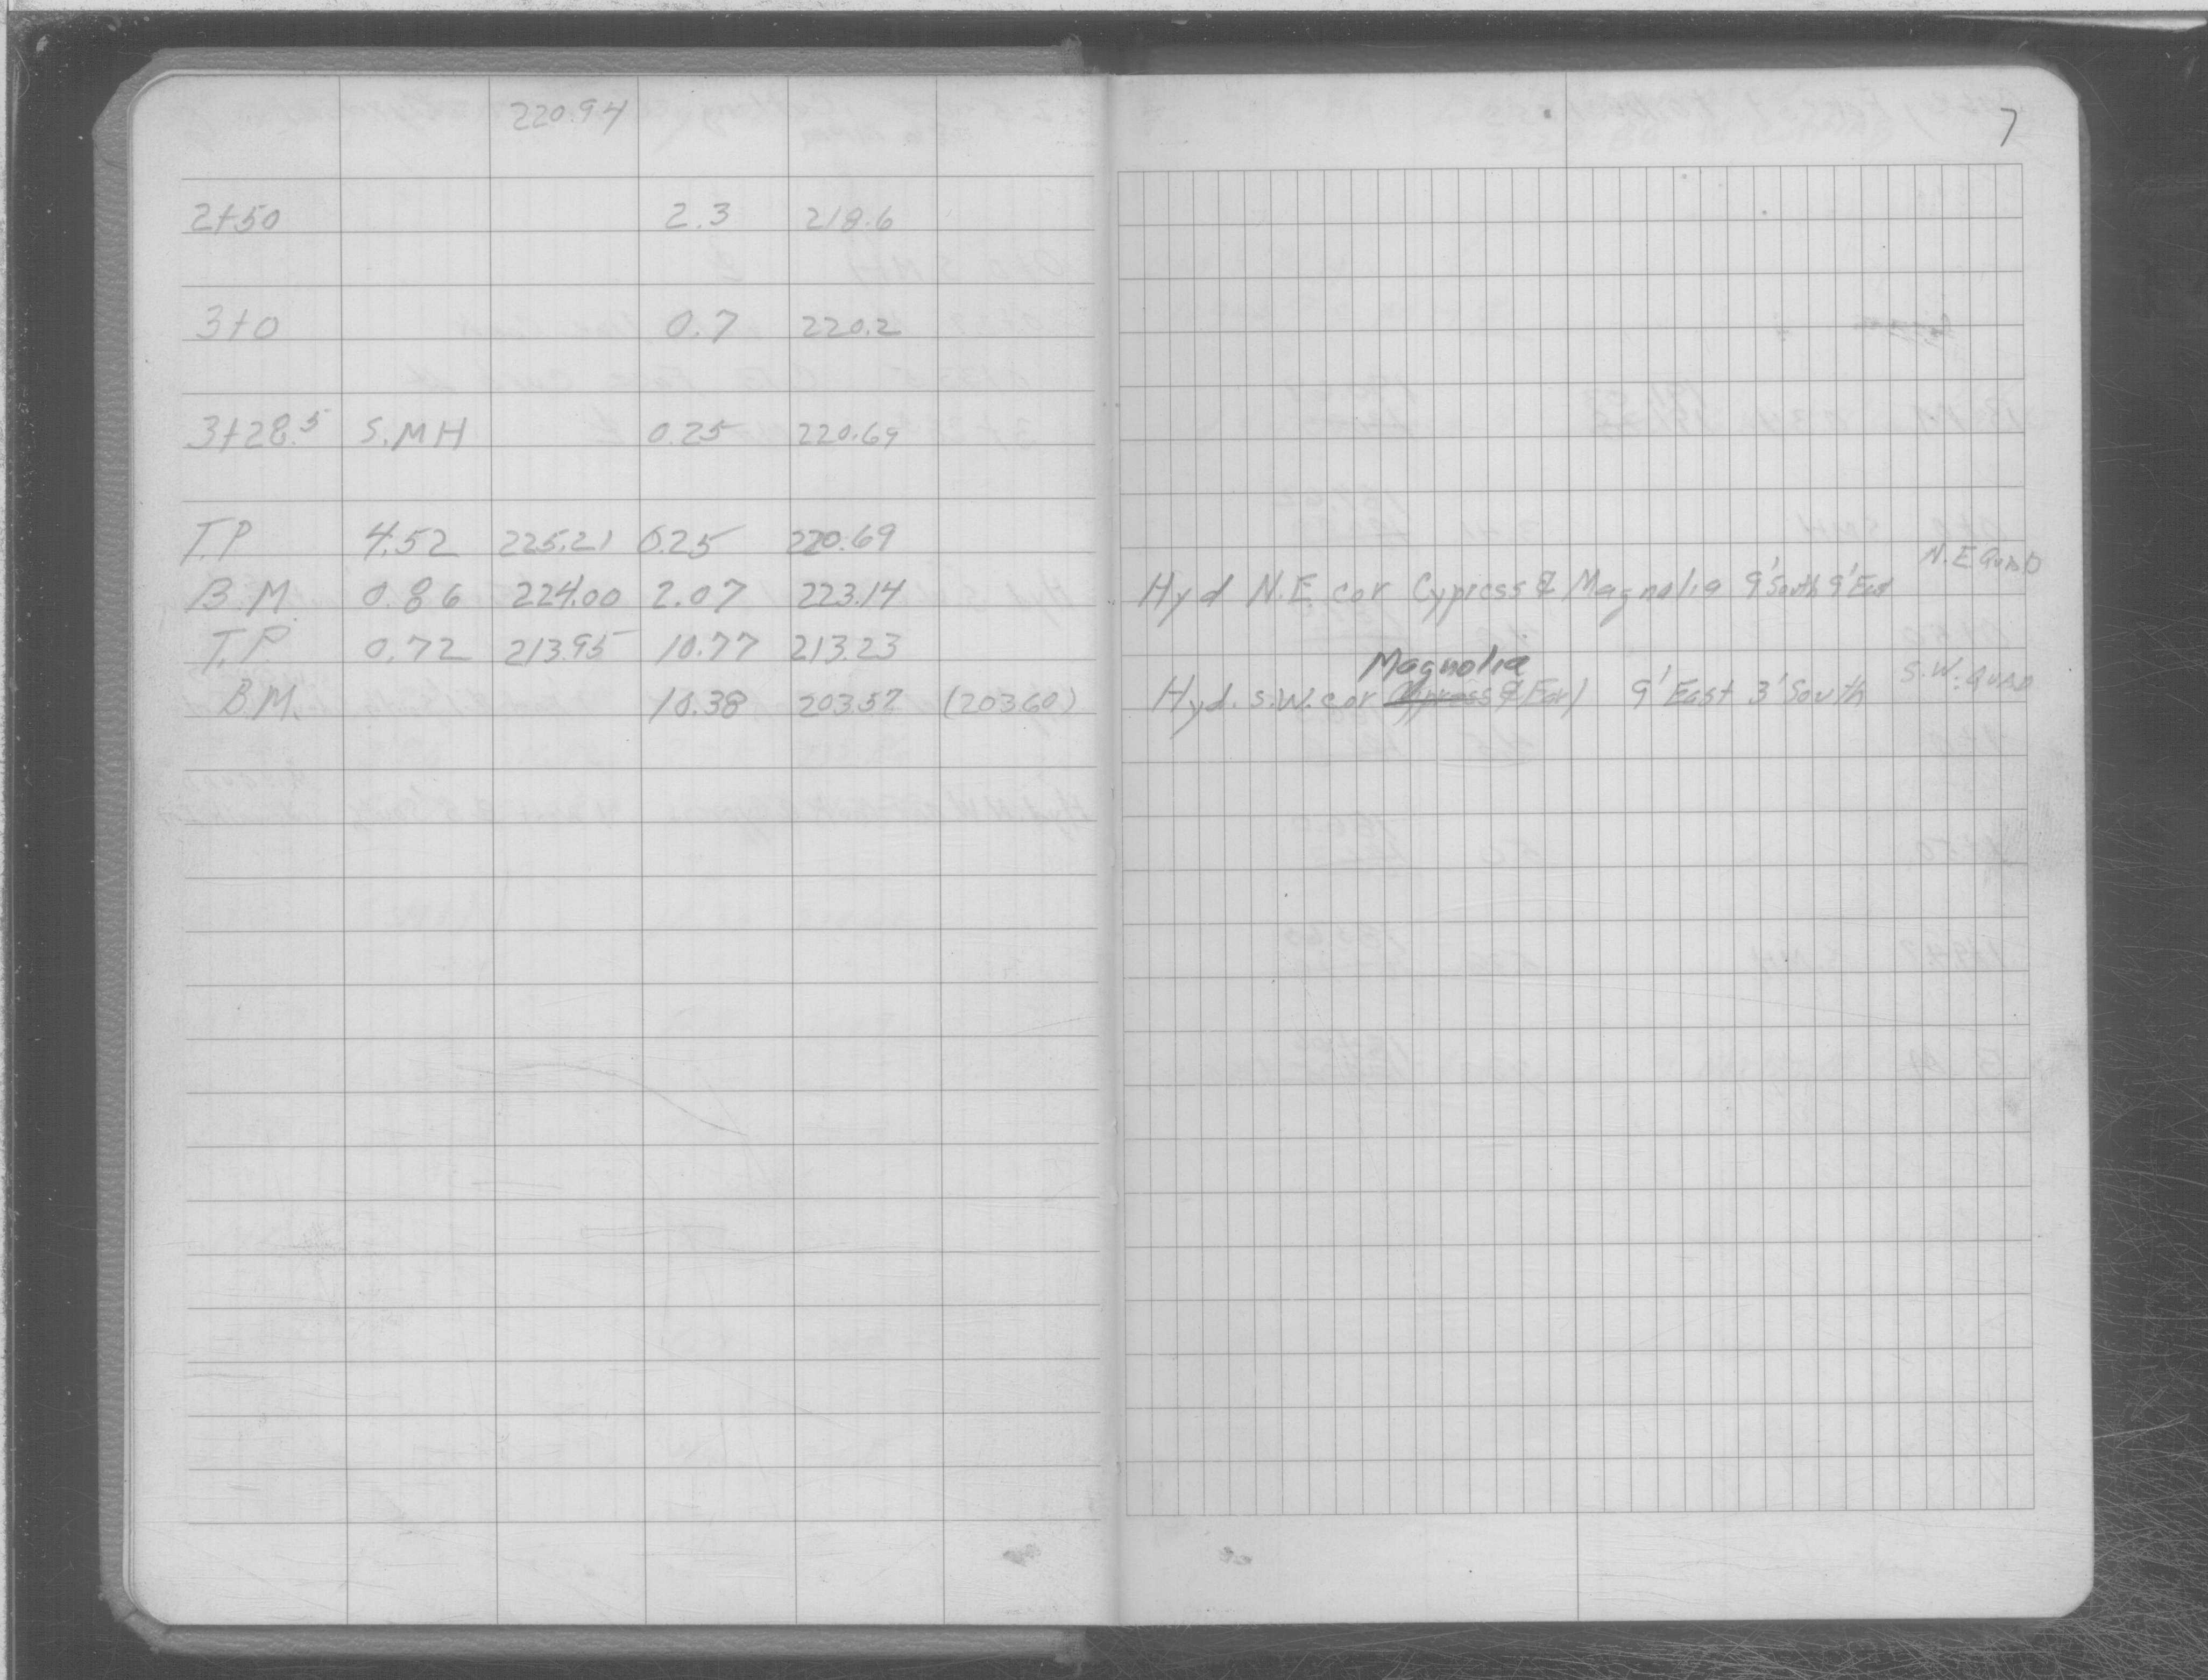 220.94
7
2+50 2.3 218.6
3+0 0.7 220.2
3+28.5 S.MH 0.25 220.69
T.P 4.52 225.21 0.25 220.69
N.E QUAD
B.M. 0.86 224.00 2.07 223.14 Hyd N.E. cor Cypress & Magnolia 9' South 9' East
T.P. 0.72 213.95 10.77 213.23
Magnolia
S.W. QUAD
B.M. 10.38 203.57 (203.60) Hyd. S.W. cor Cypress & Earl 9' East 3' South